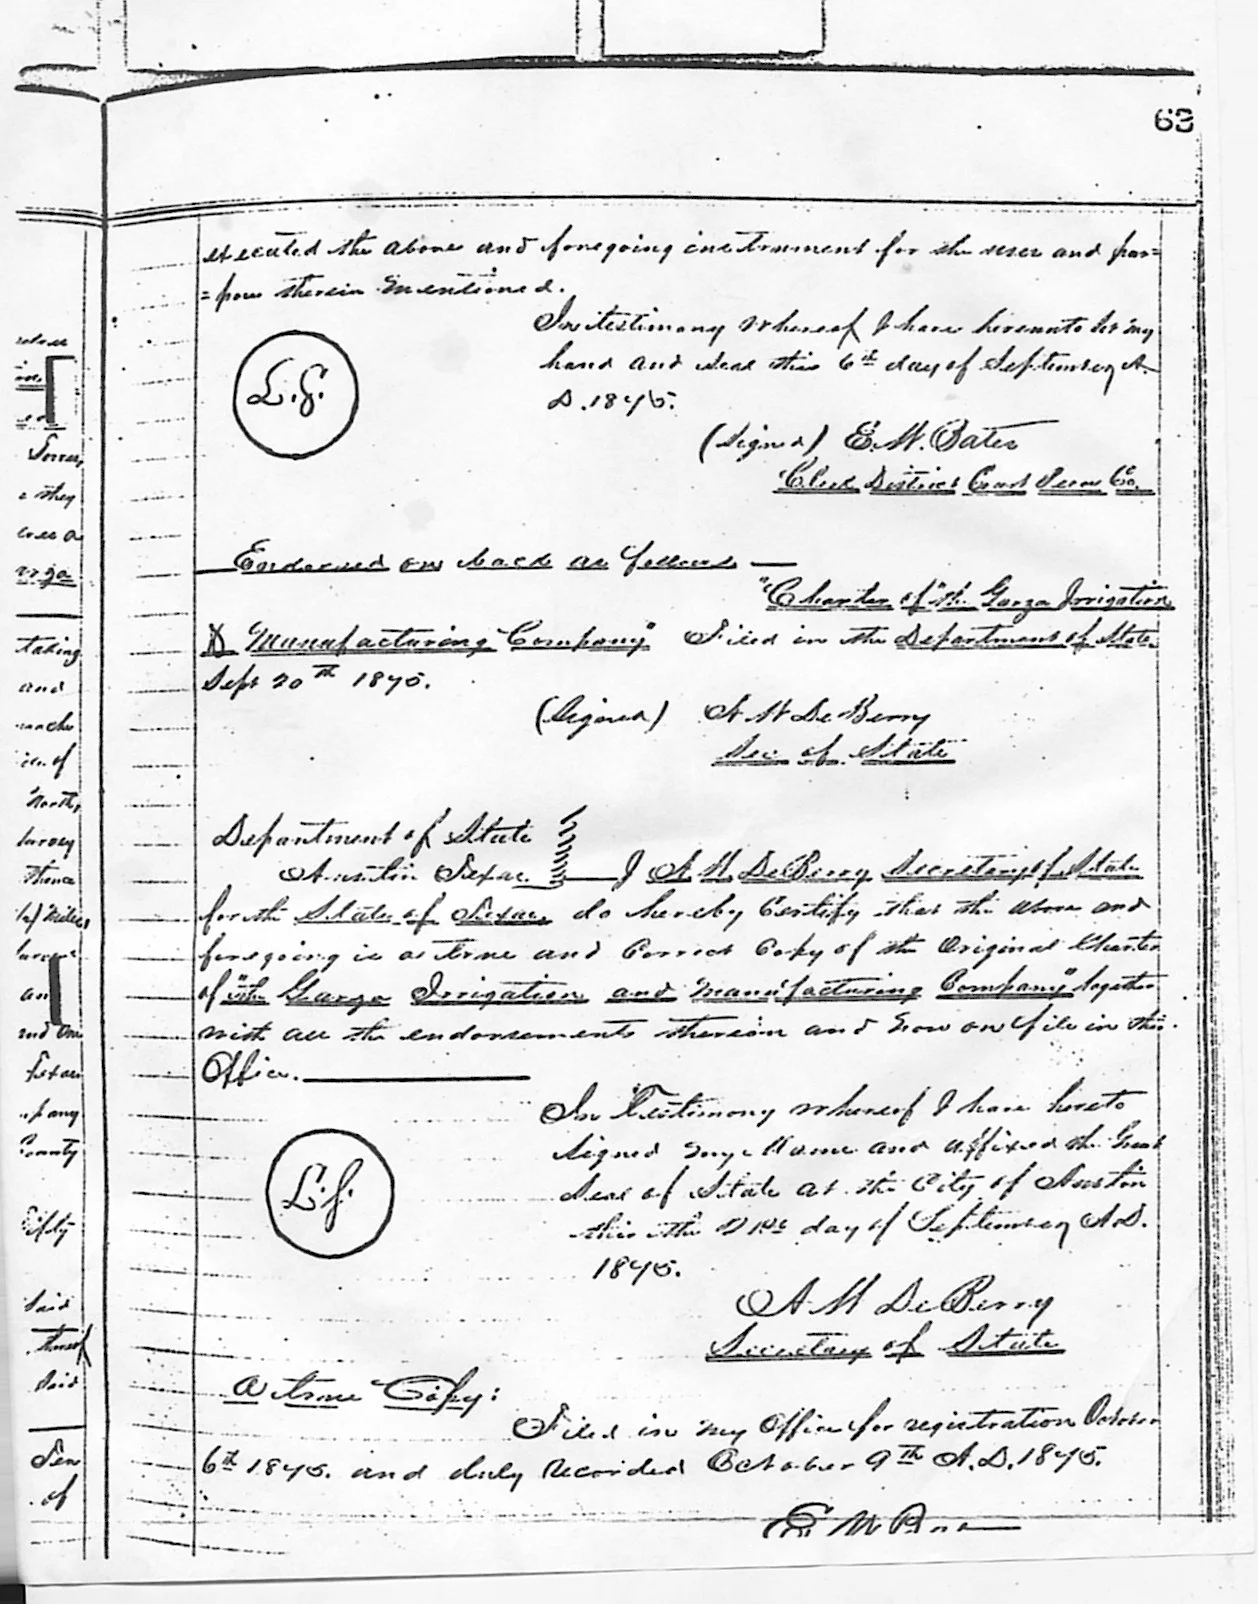 63
executed the above and foregoing instrument for the uses and pur=
=pose therein mentioned.
In testimony whereof I have hereunto set my
hand and seal this 6th day of September A.
D. 1875.
L.S.
(Signed) E. M.
Clerk District Court Co.
Endorsed on back as follows —
"Charter of "the Garza Irrigation
& Manufacturing Company" Filed in the Department of State
Sept 20th 1875.
(Signed) A W DeBerry
Sec. of State
Department of State
Austin Texas. — I A W DeBerry Secretary of State
for the State of Texas do hereby Certify that the above and
foregoing is a true and Correct Copy of the Original Charter
of "the Garza Irrigation and Manufacturing Company" together
with all the endorsements thereon and now on file in this
Office.
In Testimony whereof I have hereto
signed my Name and affixed the Great
Seal of State at the City of Austin
this the 21st day of September A.D.
1875.
L.S.
A W DeBerry
Secretary of State
A true Copy:
Filed in my Office for registration October
6th 1875. and duly Recorded October 9th A.D. 1875.
E M
they
taking
and
of
North,
survey
thence
Texas
County
Fifty
Said
thereof
Said
of